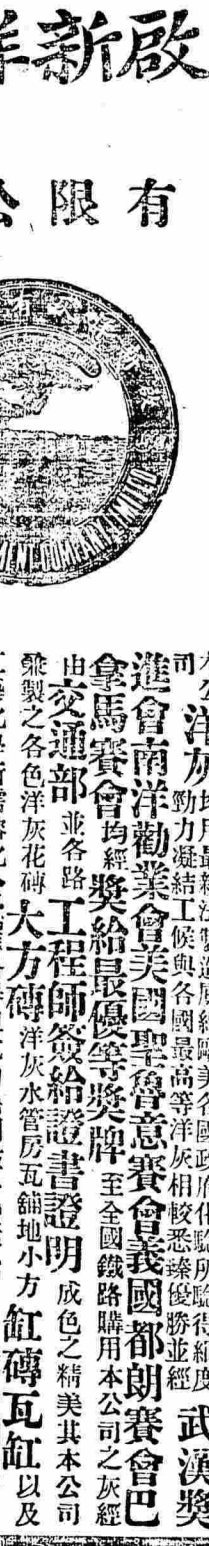 啟新洋
有限公
MENT COMPANY LIMITED
洋灰均用最新法製造屢經歐美各國政府化驗所驗得細度
司勁力凝結工候與各國最高等洋灰相較悉臻優勝並經 武漢獎
進會南洋勸業會美國聖魯意賽會義國都朗賽會巴
拿馬賽會均經獎給最優等獎牌至全國鐵路購用本公司之灰經
由交通部並各路工程師簽給證書證明成色之精美其本公司
兼製之各色洋灰花磚大方磚洋灰水管房瓦舖地小方缸磚瓦缸以及